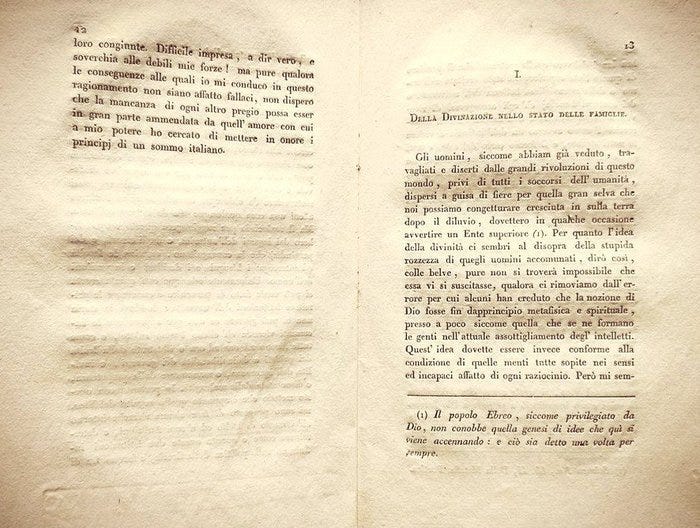 42
loro congiunte. Difficile impresa, a dir vero, e
soverchia alle debili mie forze! ma pure qualora
le conseguenze alle quali io mi conduco in questo
ragionamento non siano affatto fallaci, non dispero
che la mancanza di ogni altro pregio possa esser
in gran parte ammendata da quell'amore con cui
a mio potere ho cercato di mettere in onore i
principj di un sommo italiano.
13
I.
DELLA DIVINAZIONE NELLO STATO DELLE FAMIGLIE.
Gli uomini, siccome abbiam già veduto, tra-
vagliati e diserti dalle grandi rivoluzioni di questo
mondo, privi di tutti i soccorsi dell'umanità,
dispersi a guisa di fiere per quella gran selva che
noi possiamo congetturare cresciuta in sulla terra
dopo il diluvio, dovettero in qualche occasione
avvertire un Ente superiore (1). Per quanto l'idea
della divinità ci sembri al disopra della stupida
rozzezza di quegli uomini accomunati, dirò così,
colle belve, pure non si troverà impossibile che
essa vi si suscitasse, qualora ci rimoviamo dall'er-
rore per cui alcuni han creduto che la nozione di
Dio fosse fin dapprincipio metafisica e spirituale,
presso a poco siccome quella che se ne formano
le genti nell'attuale assottigliamento degl'intelletti.
Quest'idea dovette essere invece conforme alla
condizione di quelle menti tutte sopite nei sensi
ed incapaci affatto di ogni raziocinio. Però mi sem-
(1) Il popolo Ebreo, siccome privilegiato da
Dio, non conobbe quella genesi di idee che quì si
viene accennando: e ciò sia detto una volta per
sempre.